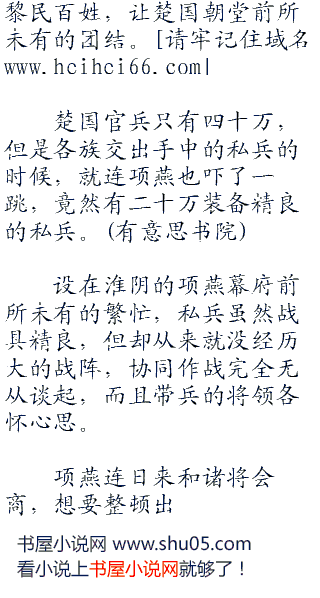 黎民百姓，让楚国朝堂前所
未有的团结。[请牢记住域名
www.hcihci66.com|
楚国官兵只有四十万，
但是各族交出手中的私兵的
时候，就连项燕也吓了一
跳，竟然有二十万装备精良
的私兵。(有意思书院)
设在淮阴的项燕幕府前
所未有的繁忙，私兵虽然战
具精良，但却从来就没经历
大的战阵，协同作战完全无
从谈起，而且带兵的将领各
怀心思。
项燕连日来和诸将会
商，想要整顿出
书屋小说网 www.shu05.com
看小说上书屋小说网就够了！